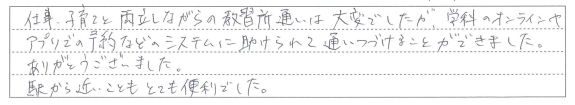 仕事、子育てと両立しながらの教習所通いは大変でしたが、学科のオンラインや
アプリでの予約などのシステムに助けられて通いつづけることができました。
ありがとうございました。
駅から近いこともとても便利でした。